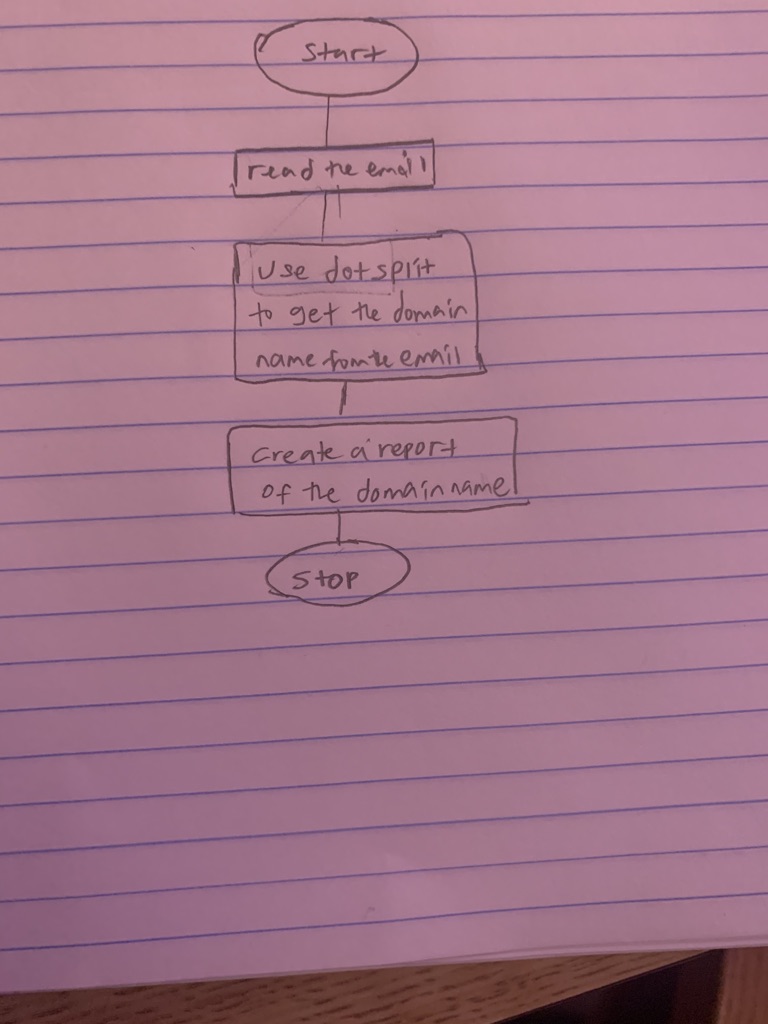 Start
read the email
Use dot split
to get the domain
name from the email
create a report
of the domain name
Stop